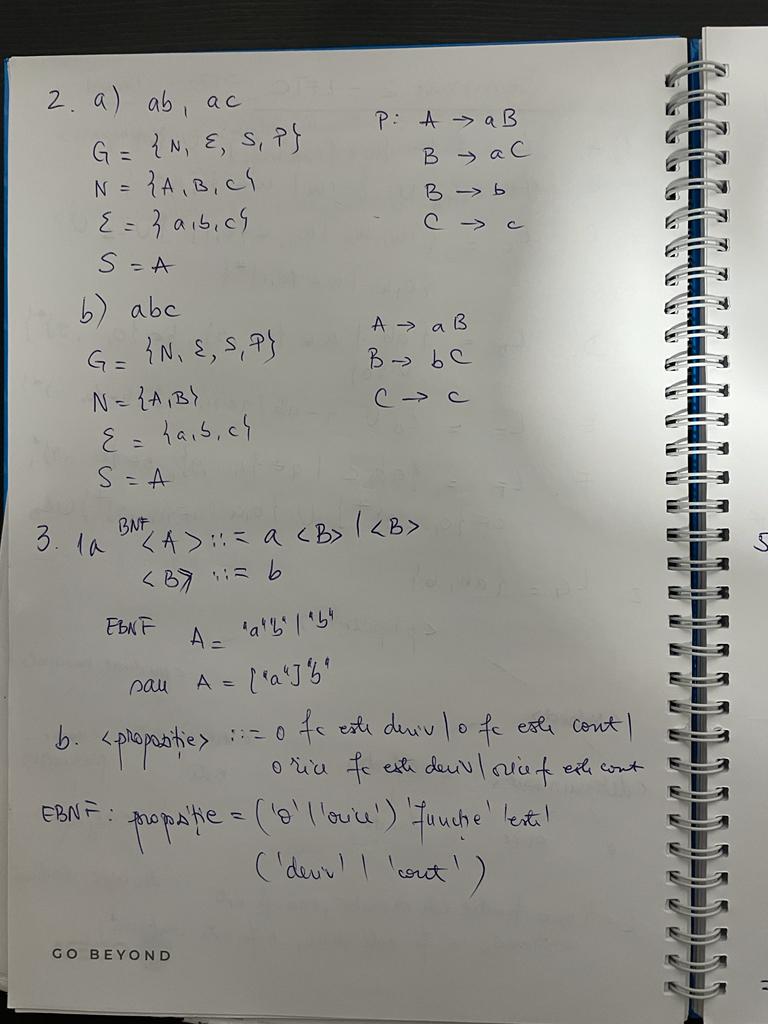 2. a) ab, ac
G = {N, Ɛ, S, P}
N = {A, B, C}
Ɛ = {a, b, c}
S = A
P: A → aB
B → aC
B → b
C → c
b) abc
G = {N, Ɛ, S, P}
N = {A, B}
Ɛ = {a, b, c}
S = A
A → aB
B → bC
C → c
3. 1a BNF <A> ::= a <B> | <B>
<B> ::= b
EBNF A = "a" "b" | "b"
sau A = ["a"] "b"
b. <propoziție> ::= o fc este deriv | o fc este cont |
orice fc este deriv | orice f este cont
EBNF: propoziție = ('o' | 'orice') 'funcție' 'este'
('deriv' | 'cont')
GO BEYOND
5
=